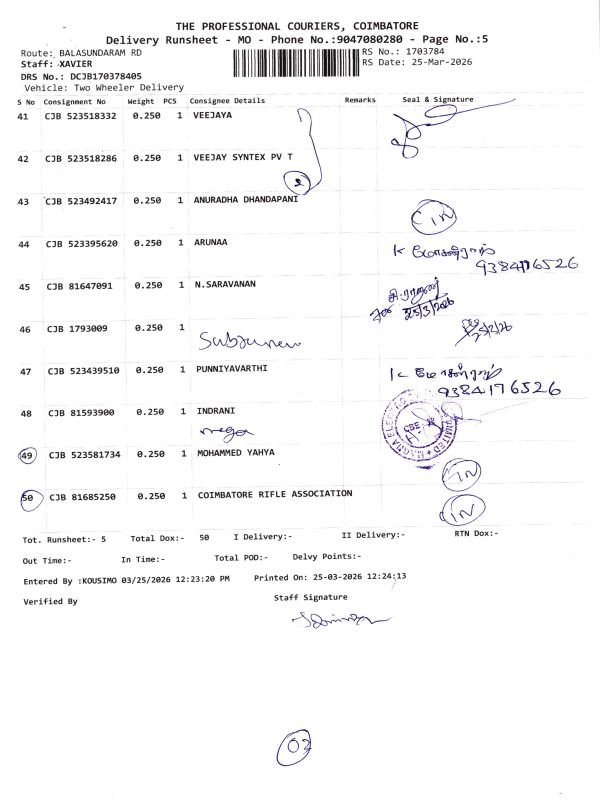 THE PROFESSIONAL COURIERS, COIMBATORE
Delivery Runsheet - MO - Phone No.:9047080280 - Page No.:5
Route: BALASUNDARAM RD
RS No.: 1703784
Staff: XAVIER
RS Date: 25-Mar-2026
DRS No.: DCJB170378405
Vehicle: Two Wheeler Delivery
S No Consignment No Weight PCS Consignee Details Remarks Seal & Signature
41 CJB 523518332 0.250 1 VEEJAYA
42 CJB 523518286 0.250 1 VEEJAY SYNTEX PV T
2
43 CJB 523492417 0.250 1 ANURADHA DHANDAPANI
CIN
44 CJB 523395620 0.250 1 ARUNAA
K மோகன்ராஜ்
9384176526
45 CJB 81647091 0.250 1 N.SARAVANAN
25/3/2026
46 CJB 1793009 0.250 1
47 CJB 523439510 0.250 1 PUNNIYAVARTHI
K மோகன்ராஜ்
9384176526
48 CJB 81593900 0.250 1 INDRANI
mega
CBE
49 CJB 523581734 0.250 1 MOHAMMED YAHYA
CIN
50 CJB 81685250 0.250 1 COIMBATORE RIFLE ASSOCIATION
CIN
Tot. Runsheet:- 5 Total Dox:- 50 I Delivery:- II Delivery:- RTN Dox:-
Out Time:- In Time:- Total POD:- Delvy Points:-
Entered By :KOUSIMO 03/25/2026 12:23:20 PM Printed On: 25-03-2026 12:24:13
Verified By
Staff Signature
02